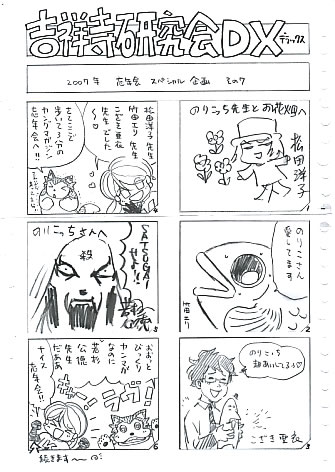 吉祥寺研究会DX
デラックス
2007年 忘年会 スペシャル企画 その7
のりこっち先生とお花畑へ
松田洋子
1
のりこさん
愛してます
竹田エリ
2
のりこっち
超あいしてるっ♡
こざき亜衣
3
松田洋子先生
竹田エリ先生
こざき亜衣
先生でした
〜♡
そしてここで
まいて3分の
ヤングマガジン
忘年会へ!!
4
のりこっちさんへ
殺
SATSUGAI
せよ!!
若杉公徳
5
おおっと
びっくり
ヤンマガ
なのに
若杉
公徳
先生
だぁぁ
ナイス
忘年会!!
ラヴ!
6
続きます〜